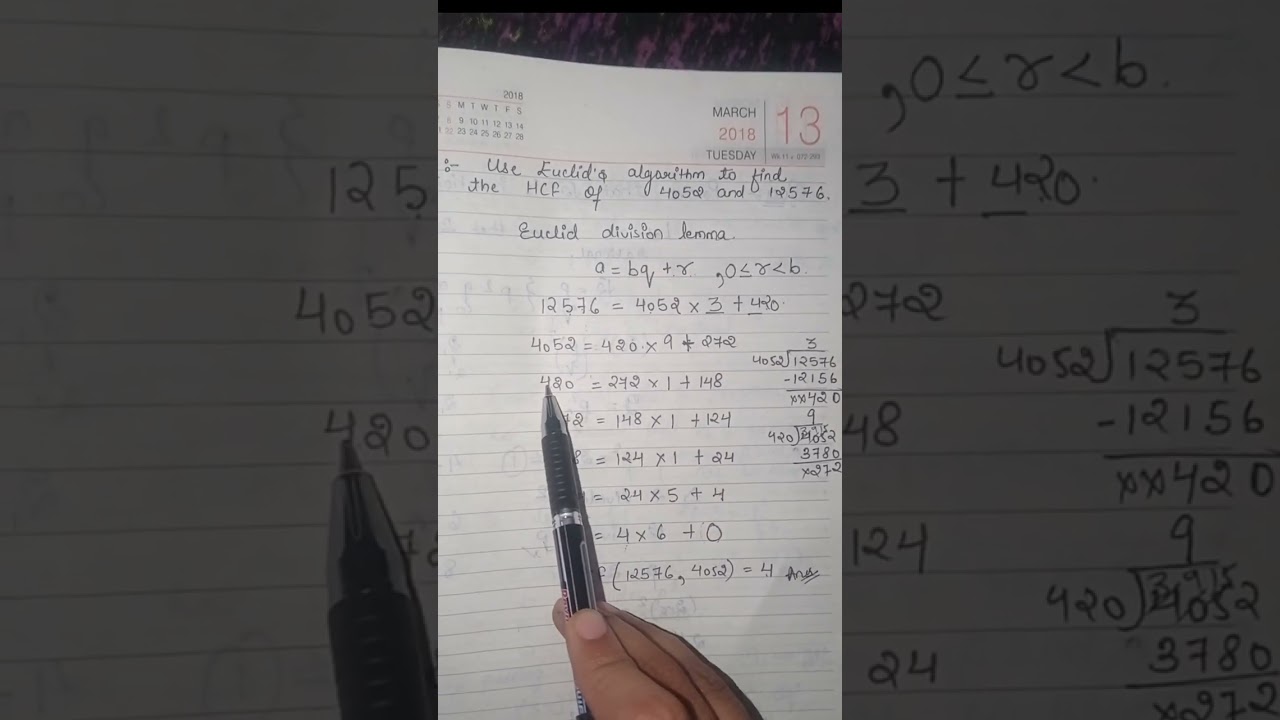 2018
S M T W T F S
8 9 10 11 12 13 14
22 23 24 25 26 27 28
MARCH
2018
TUESDAY
13
:- Use Euclid's algorithm to find
the HCF of 4052 and 12576.
Euclid division lemma.
a = bq + r ,0≤r<b.
12576 = 4052 × 3 + 420.
4052 = 420 × 9 + 272
420 = 272 × 1 + 148
72 = 148 × 1 + 124
8 = 124 × 1 + 24
= 24 × 5 + 4
= 4 × 6 + 0
f (12576, 4052) = 4 Ans
3
4052)12576
-12156
××420
9
420)4052
3780
×272